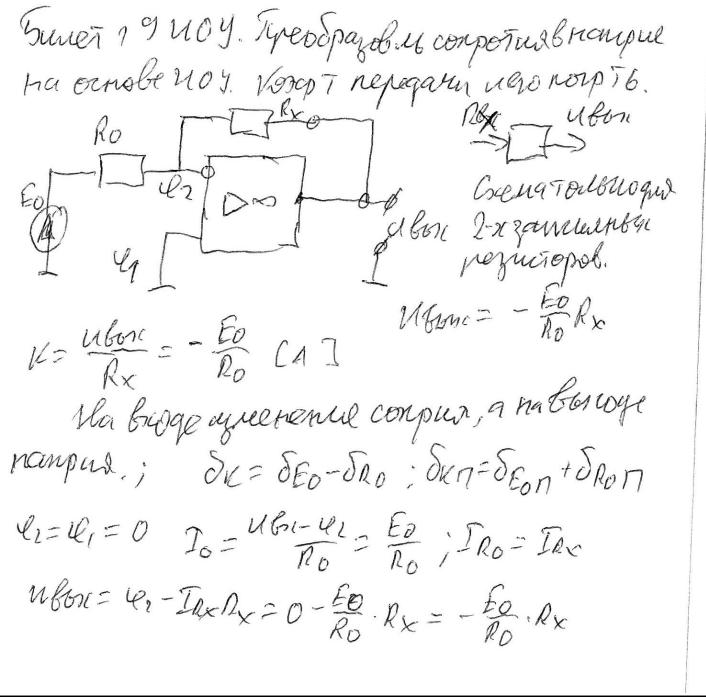 Билет 19 ИОУ. Преобразов-ль сопротив в наприе
на основе ИОУ. Коэфт передачи и его погрть.
Rx
Rx Uвых
R0
φ2
▷∞
E0
Uвых
φ1
Схема только для
2-х зажимных
резисторов.
Uвых = - E0/R0 Rx
K = Uвых/Rx = - E0/R0 [A]
На входе изменение соприя, а на выходе
наприя.; δK = δE0 - δR0 ; δKП = δE0П + δR0П
φ2 = φ1 = 0 I0 = Uвх - φ2/R0 = E0/R0 ; IR0 = IRx
Uвых = φ2 - IRx Rx = 0 - E0/R0 · Rx = - E0/R0 · Rx